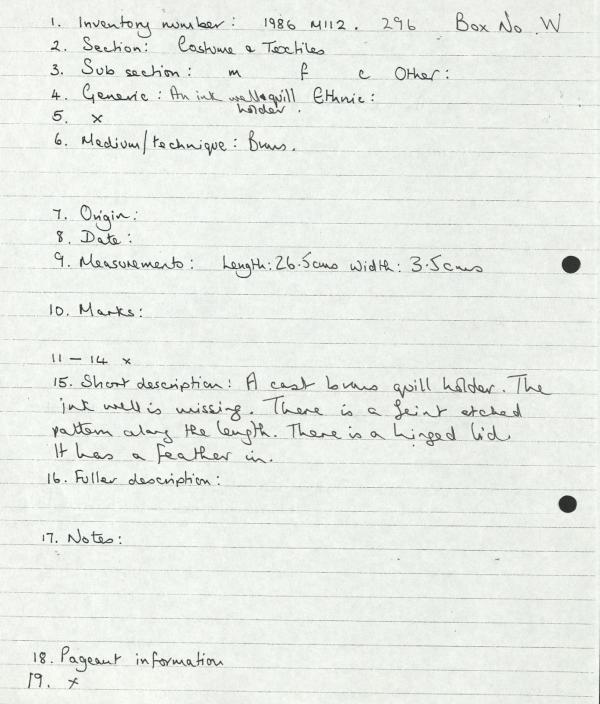 1. Inventory number: 1986 M112. 296 Box No. W
2. Section: Costume & Textiles
3. Sub section: m f c Other:
4. Generic: An ink well & quill Ethnic:
holder.
5. x
6. Medium/technique: Brass.
7. Origin:
8. Date:
9. Measurements: Length: 26.5cms width: 3.5cms
10. Marks:
11 – 14 x
15. Short description: A cast brass quill holder. The
ink well is missing. There is a feint etched
pattern along the length. There is a hinged lid.
It has a feather in.
16. Fuller description:
17. Notes:
18. Pageant information
19. x